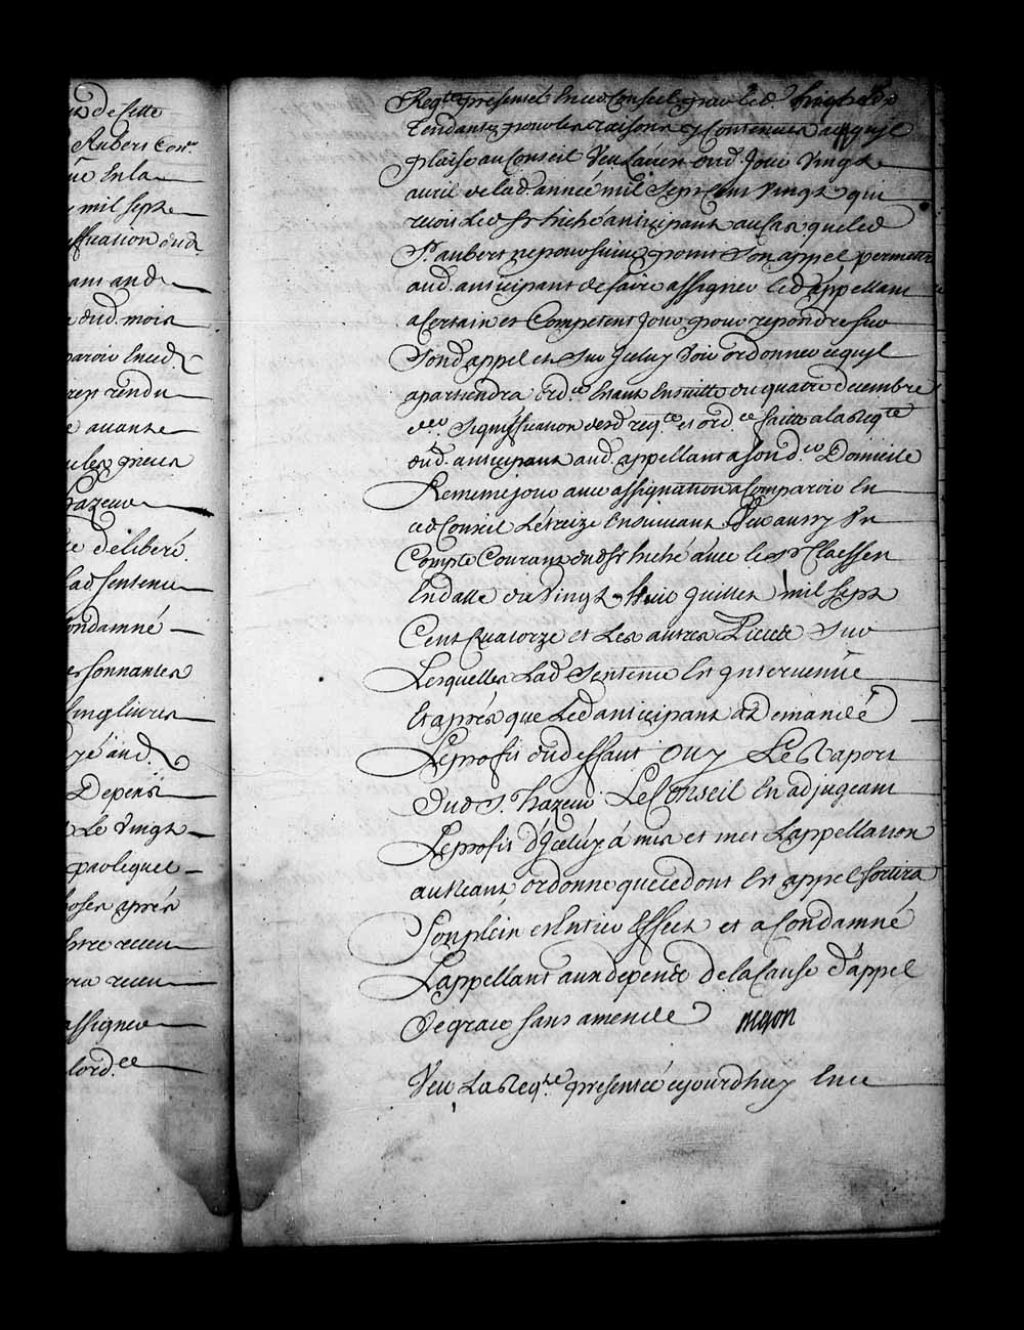 de Cette
Aubert Conr
En la
mil sept
ffication dud.
and
dud. mois
paroir Eneud.
rendu
avant
les griefs
hazeur
delibéré
lad sentence
ondamné
sonnantes
Cinq livres
yé aud.
Depens
Le Vingt
parlequel
après
receu
receu
assigner
lord.ce
Reqte presenté En ce Conseil par led
Tendante pour les raisons y Contenues a ce quil
plaise au Conseil Veu Lacte dud. Jour Vingt
avril de lad. année mil Sept Cent Vingt qui
recoit led sr hiché anticipant au Cas que led
Sr. aubert ne poursuive point Son appel permettre
aud. anticipant de faire assigner led appellant
a Certain et Competent Jour pour repondre sur
Sond appel et Sur Iceluy Voir ordonner ce quil
apartiendra ord.ce Etant Ensuitte du quatre decembre
Signiffication desd reqte et ord.ce faitte a la Reqte
dud. anticipant aud. appellant a son d. Domicile
Le meme jour avec assignation a Comparoir En
ced Conseil Le treize Ensuivant Veu aussy Un
Compte Courant dud sr hiché avec le sr Claessen
En datte du Vingt huit Juillet mil sept
Cent Quatorze et Les autres Pieces Sur
Lesquelles Lad Sentence Est Intervenüe
Et après que Led anticipant a Demandé
Le profit dud deffaut Ouy Le Raport
Dud S. hazeur Le Conseil En adjugeant
Le profit d'Iceluy à mis et met Lappellation
au Neant ordonne que ce dont Est appel sortira
Son plein et Entier Effect et a Condamné
Lappellant aux depens De la Cause d'appel
De grace sans amende Begon
Veu La Reqte presentée cejourdhuy En ce